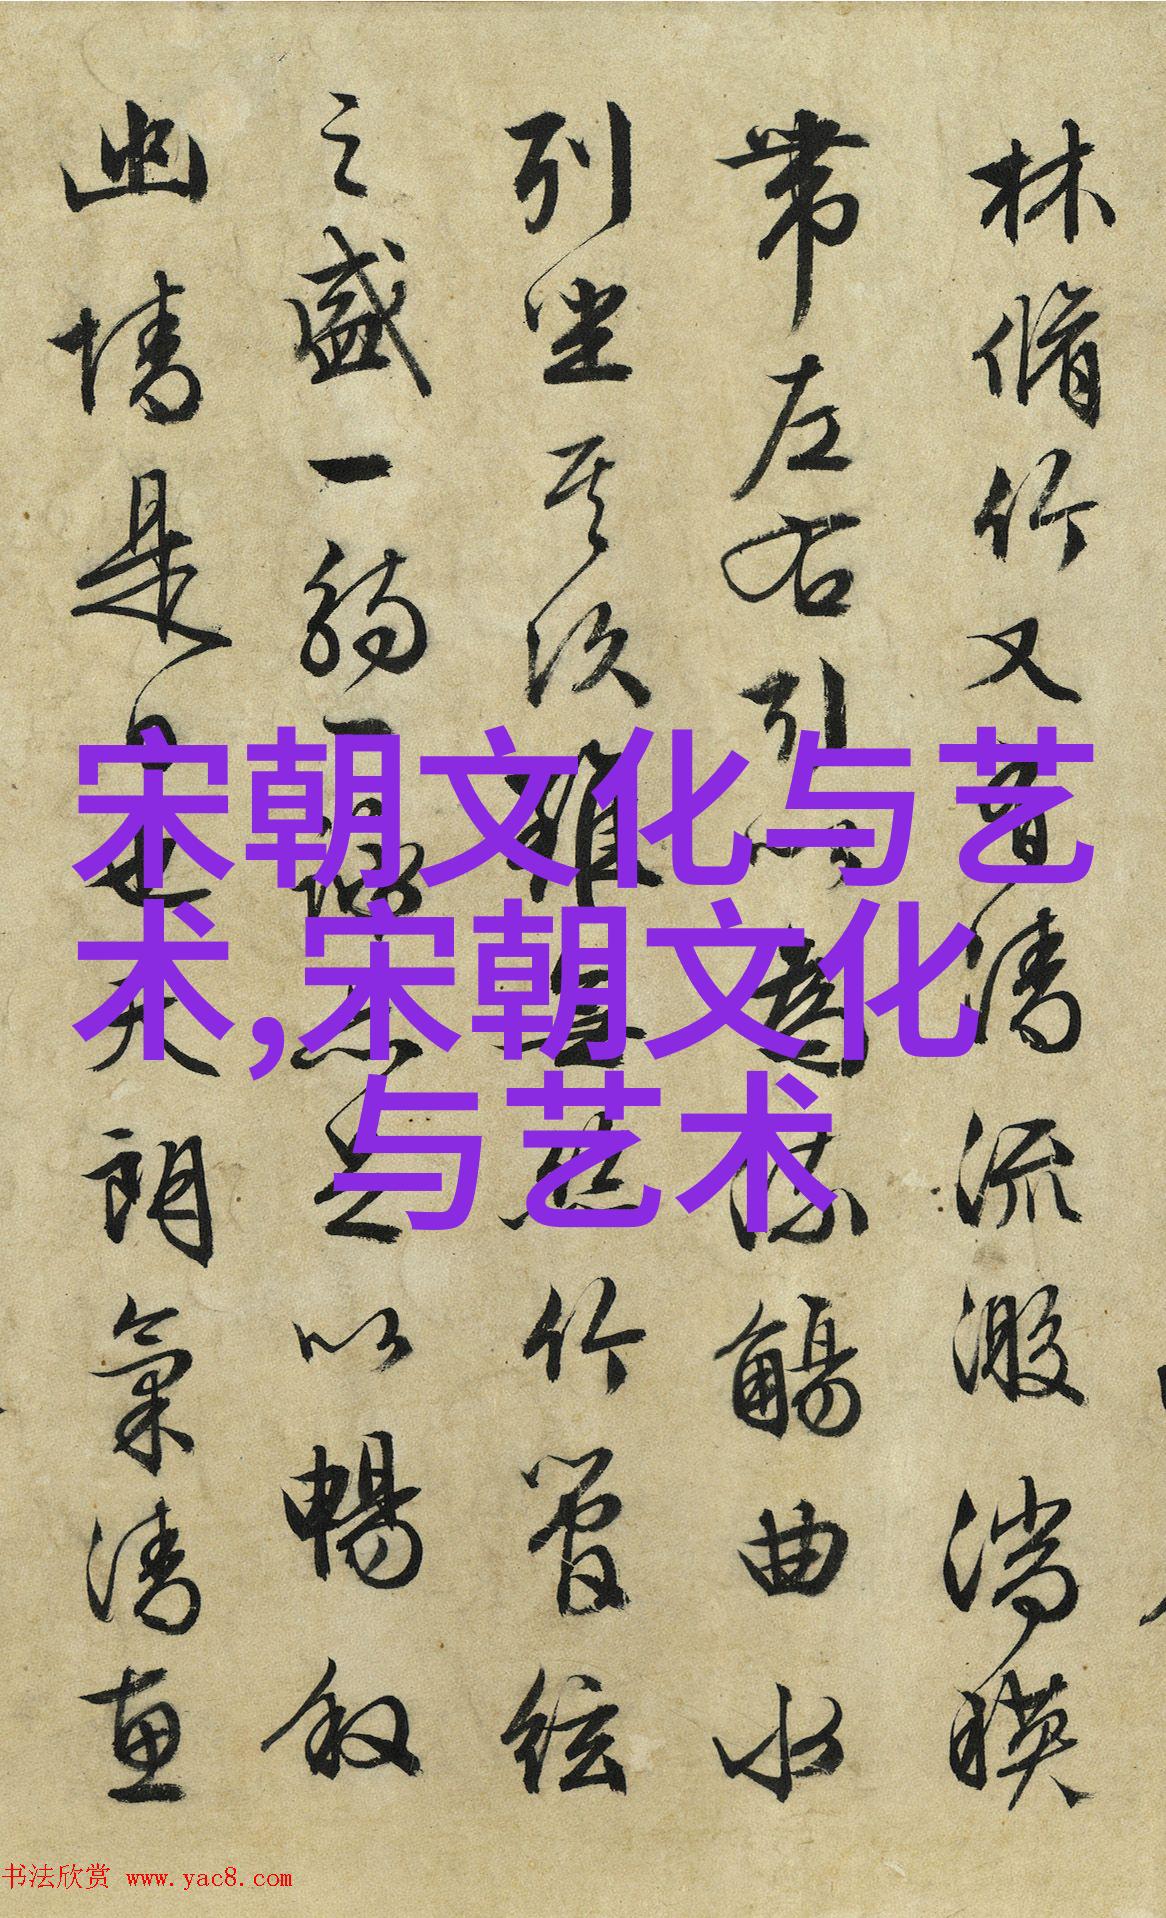 林脩竹又有清流激湍暎
帶左右引以為流觴曲水
列坐其次雖無絲竹管絃
之盛一觴一詠亦足以暢叙
幽情是日也天朗氣清惠
宋朝文化与艺
术,宋朝文化
与艺术
书法欣赏 www.yac8.com